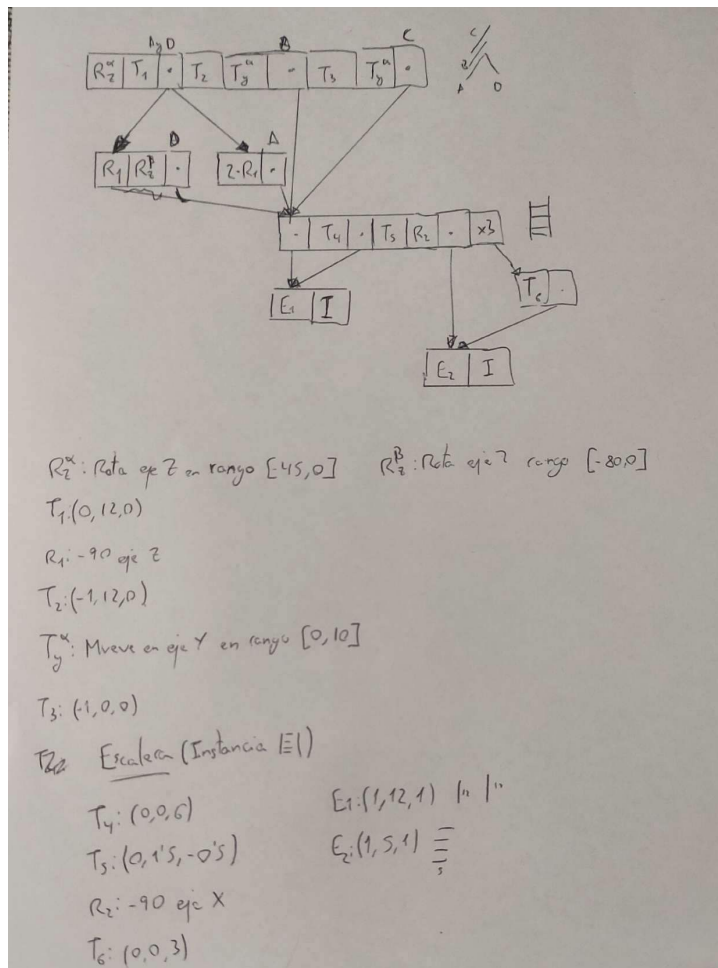 A y D B C
R_z^α | T_1 | · | T_2 | T_y^α | · | T_3 | T_y^α | ·
C
B
A D
D A
R_1 | R_z^β | · 2·R_1 | ·
· | T_4 | · | T_5 | R_2 | · | x3
E_1 | I T_6 | ·
E_2 | I
R_z^α: Rota eje Z en rango [-45,0] R_z^β: Rota eje Z rango [-80,0]
T_1:(0,12,0)
R_1: -90 eje Z
T_2:(-1,12,0)
T_y^α: Mueve en eje Y en rango [0,10]
T_3: (-1,0,0)
Escalera (Instancia E1)
T_4: (0,0,6) E_1:(1,12,1)
T_5: (0,1'5,-0'5) E_2:(1,5,1)
5
R_2: -90 eje X
T_6: (0,0,3)